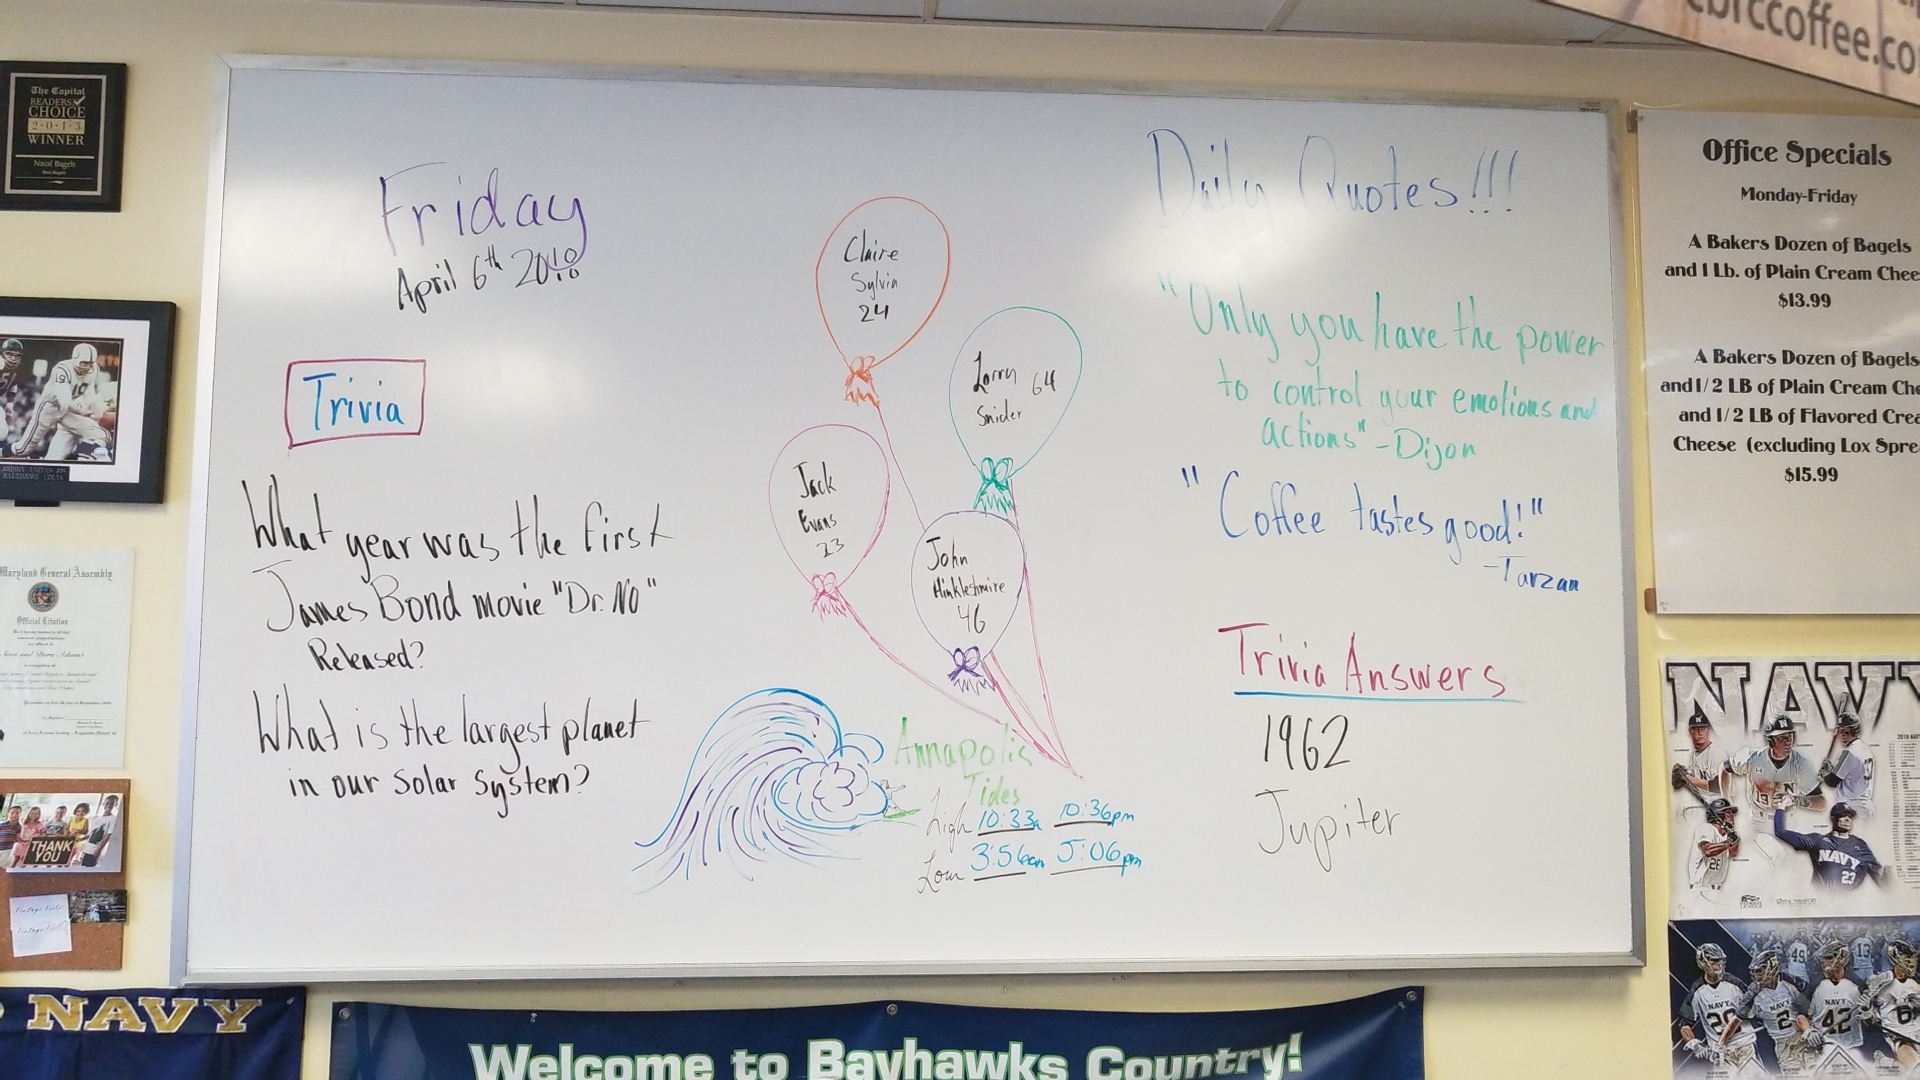 cbrccoffee.co
The Capital
READERS
CHOICE
2·0·1·3
WINNER
Naval Bagels
Best Bagels
JOHNNY UNITAS #19
BALTIMORE COLTS
Maryland General Assembly
Official Citation
THANK
YOU
Vintage Feels
Vintage Feels
NAVY
Friday
April 6th
Trivia
What year was the first
James Bond movie "Dr. No"
Released?
What is the largest planet
in our solar system?
Claire
Sylvin
24
Larry 64
Snider
Jack
Evans
23
John
Hinkleshmire
46
Annapolis
Tides
High 10:33a 10:36pm
Low 3:56am 5:06pm
Daily Quotes!!!
"Only you have the power
to control your emotions and
actions" - Dijon
"Coffee tastes good!"
- Tarzan
Trivia Answers
1962
Jupiter
Welcome to Bayhawks Country!
Office Specials
Monday-Friday
A Bakers Dozen of Bagels
and 1 Lb. of Plain Cream Chee
$13.99
A Bakers Dozen of Bagels
and 1/2 LB of Plain Cream Che
and 1/2 LB of Flavored Crea
Cheese (excluding Lox Spre
$15.99
NAVY
NAVY
23